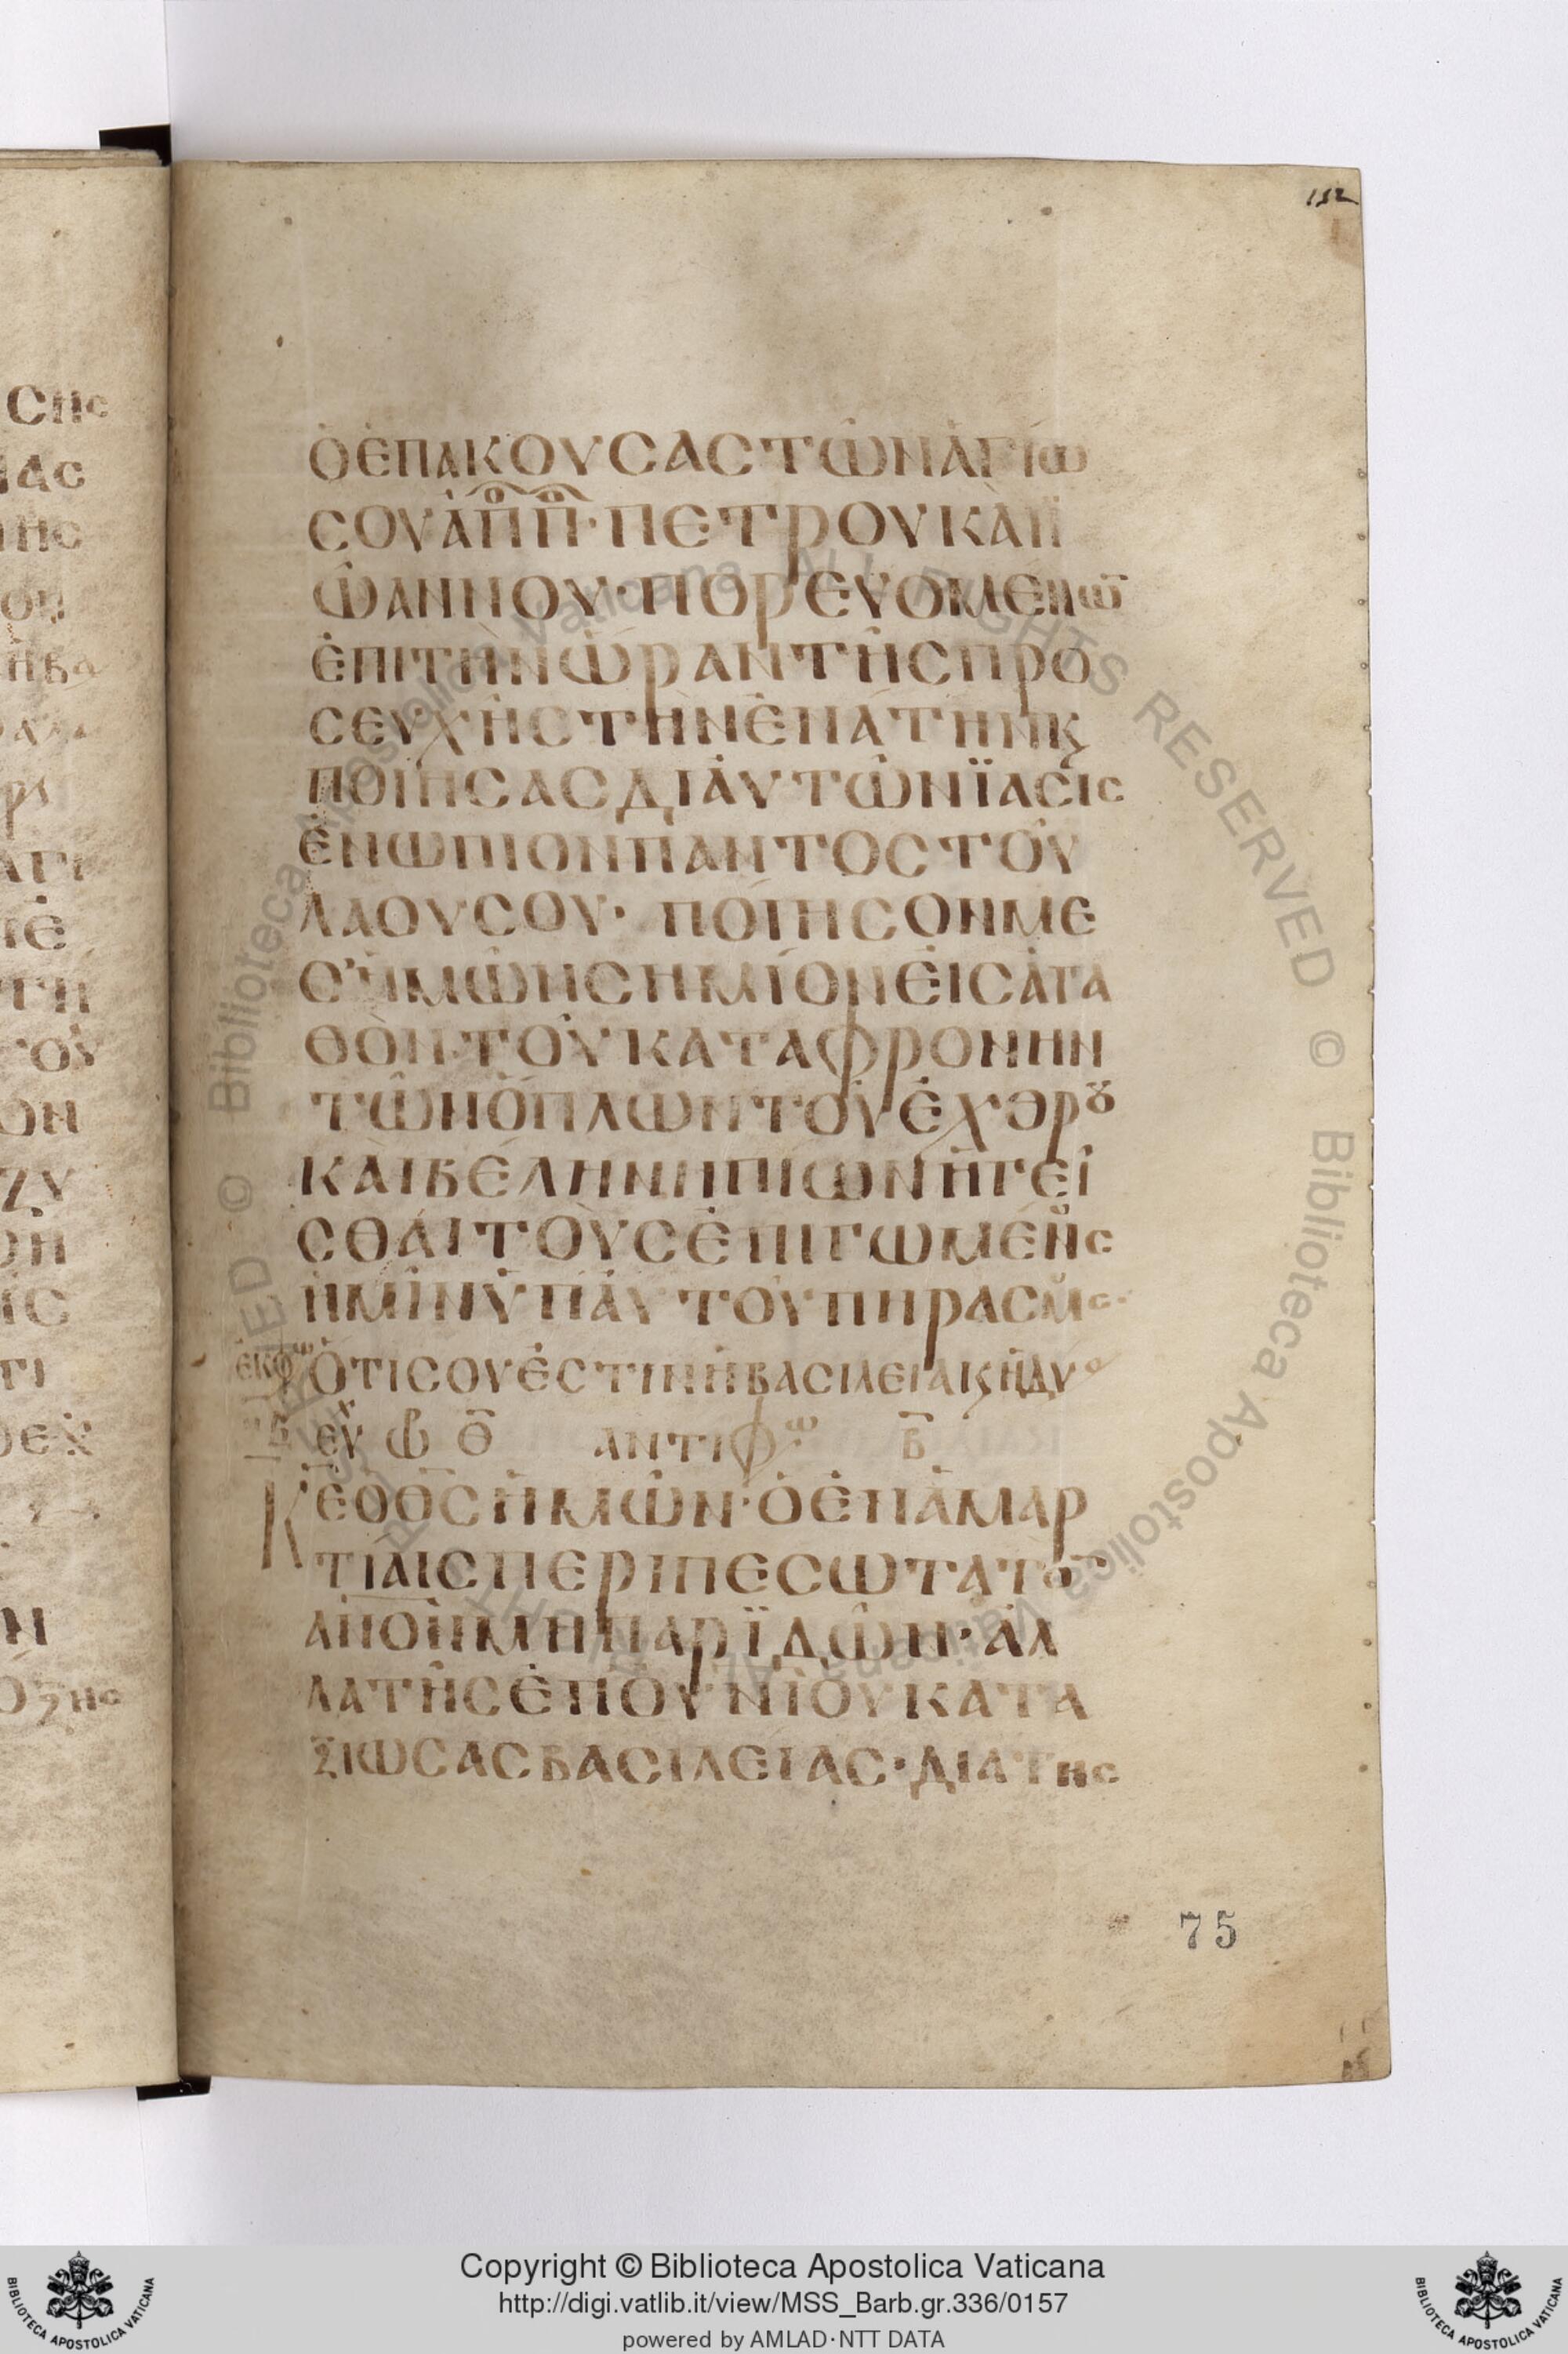 152
ὉἘΠΑΚΟΥCΑCΤῶΝἉΓΙω
CΟΥἈΠΟΠΟ·ΠΕΤΡΟΥΚΑῚΪ
ωΑΝΝΟΥ·ΠΟΡΕΥΟΜΕΝωΤ
ἘΠΙΤῊΝὭΡΑΝΤῆCΠΡΟ
CΕΥΧῆCΤῊΝἘΝΑΤΗΝΚ
ΠΟΙΗCΑCΔΙΑΥΤῶΝΪΑCΙC
ἘΝωΠΙΟΝΠΑΝΤΟCΤΟΥ
ΛΑΟΥCΟΥ· ΠΟΙΗCΟΝΜΕ
Θ'ἩΜῶΝCΗΜΙΟΝΕἸCἈΓΑ
ΘΟΝ·ΤΟΥΚΑΤΑΦΡΟΝΗΝ
ΤῶΝὉΠΛωΝΤΟΥἘΧΘΡȣ
ΚΑῚΒΕΛΗΝΗΠΙωΝἩΓΕΙ
CΘΑΙΤΟΥCἘΠΙΓωΜΕΝȣC
ἩΜΙΝὙΠΑΥΤΟΥΠΗΡΑCΜȣC·
ἘΚΦω ὍΤΙCΟΥἘCΤΙΝἩΒΑCΙΛΕΙΑΚἩΔΥ
ΕΥΧ ω Θ ΑΝΤΙΦω Β
ΚΕΟΘCἩΜῶΝ·ὉἘΝἉΜΑΡ
ΤΙΑΙCΠΕΡΙΠΕCωΤΑΤΟΤ
ΑΝΟΝΜΗΠΑΡΪΔῶΝ·ἈΛ
ΛΑΤῆCἘΠΟΥΝΙΟΥΚΑΤΑ
ΞΙωCΑCΒΑCΙΛΕΙΑC·ΔΙΑΤΗC
75
Copyright © Biblioteca Apostolica Vaticana
http://digi.vatlib.it/view/MSS_Barb.gr.336/0157
powered by AMLAD·NTT DATA
BIBLIOTECA APOSTOLICA VATICANA
BIBLIOTECA APOSTOLICA VATICANA